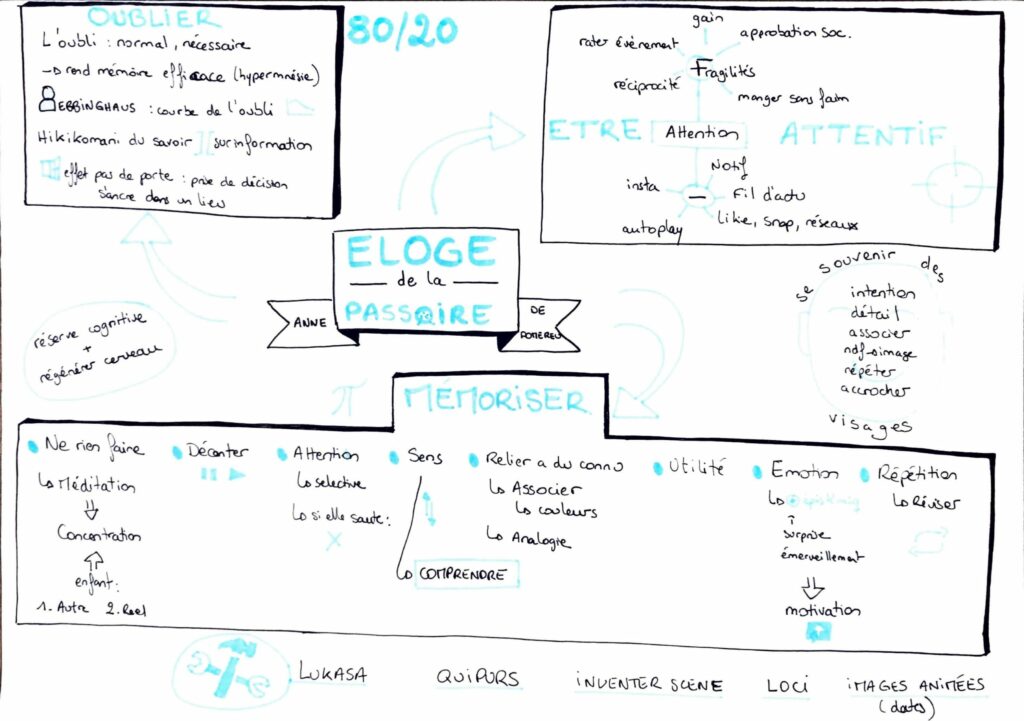 OUBLIER
L'oubli : normal, nécessaire
rend mémoire efficace (hypermnésie)
EBBINGHAUS : courbe de l'oubli
Hikikomani du savoir surinformation
effet pas de porte : prise de décision
s'ancre dans un lieu
80/20
gain
rater évènement
approbation soc.
Fragilités
réciprocité
manger sans faim
ETRE Attention ATTENTIF
Notif
insta
Fil d'actu
—
Like, snap, réseaux
autoplay
ELOGE
de la
PASSOIRE
ANNE
DE
POMEREU
réserve cognitive
+
régénérer cerveau
se souvenir des
intention
détail
associer
ndf→image
répéter
accrocher
visages
π
MÉMORISER
Ne rien faire
Méditation
Concentration
enfant:
1. Autre 2. Reel
Décanter
Attention
selective
si elle saute :
X
Sens
COMPRENDRE
Relier a du connu
Associer
couleurs
Analogie
Utilité
Emotion
surprise
émerveillement
motivation
Répétition
Réviser
LUKASA
QUIPURS
INVENTER SCÈNE
LOCI
IMAGES ANIMÉES
(dates)